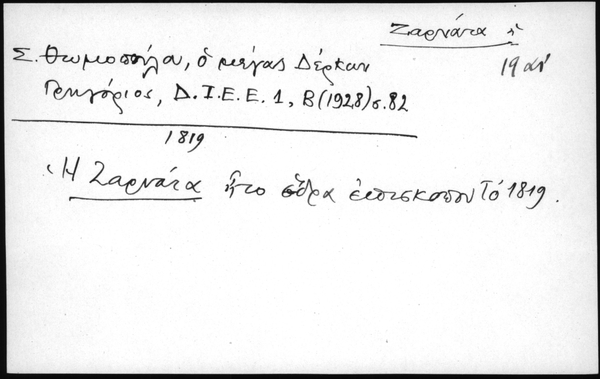 Ζαρνάτα ἡ
19 αἰ
Σ. Θωμοπούλου, ὁ μέγας Δέρκων
Γρηγόριος, Δ.Ι.Ε.Ε. 1, Β(1928)σ.82
1819
Ἡ Ζαρνάτα ἦτο ἕδρα ἐπισκόπου τό 1819.